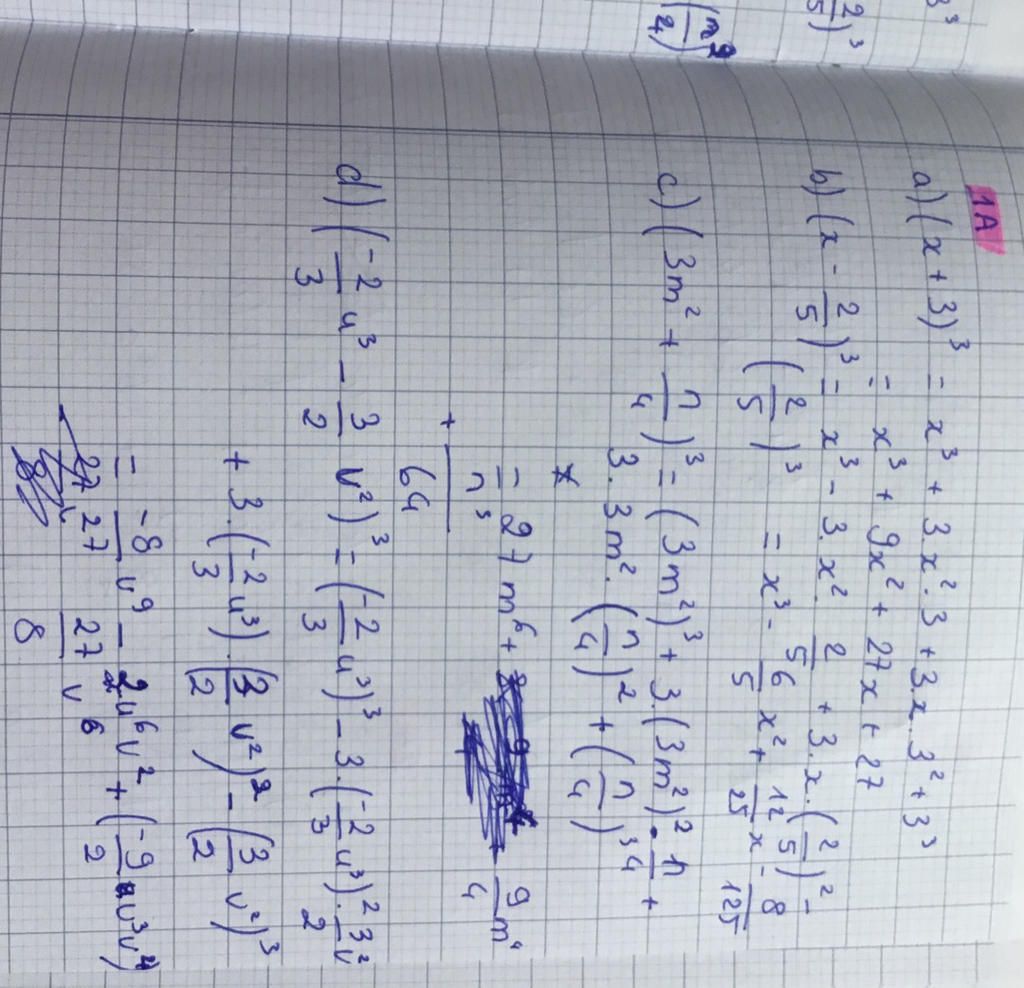 1A
a) (x + 3)³ = x³ + 3.x².3 + 3x.3² + 3³
= x³ + 9x² + 27x + 27
b) (x - 2/5)³ = x³ - 3.x² 2/5 + 3.x.(2/5)² -
(2/5)³ = x³ - 6/5 x² + 12/25 x - 8/125
c) (3m² + n/4)³ = (3m²)³ + 3.(3m²)² . n/4 +
3.3m².(n/4)² + (n/4)³
= 27m⁶ + 9/4 m⁴
+ n³/64
d) (-2/3 u³ - 3/2 v²)³ = (-2/3 u³)³ - 3.(-2/3 u³)².3/2 v²
+ 3.(-2/3 u³).(3/2 v²)² - (3/2 v²)³
= -8/27 u⁹ - 2u⁶v² + (-9/2 u³v⁴)
27/8 v⁶